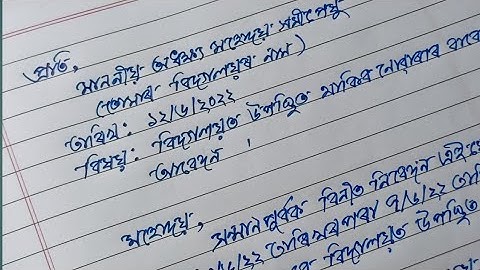 প্ৰতি,
মাননীয় অধ্যক্ষ মহোদয় সমীপেষু
(তোমাৰ বিদ্যালয়ৰ নাম)
তাৰিখ: ১২/৬/২০২২
বিষয়: বিদ্যালয়ত উপস্থিত থাকিব নোৱাৰাৰ বাবে
আবেদন ।
মহোদয়,
সন্মানপূৰ্বক বিনীত নিবেদন এই যে
৬/২২ তাৰিখৰপৰা ৭/৬/২২
বিদ্যালয়ত উপস্থিত